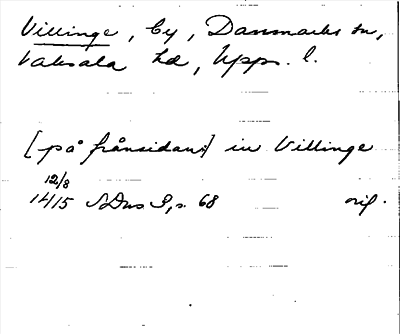 Villinge, by, Danmarks sn,
Vaksala hd, Upps. l.
[på frånsidan:] in Villinge
12/8
1415 SDns I, s. 68 orig.